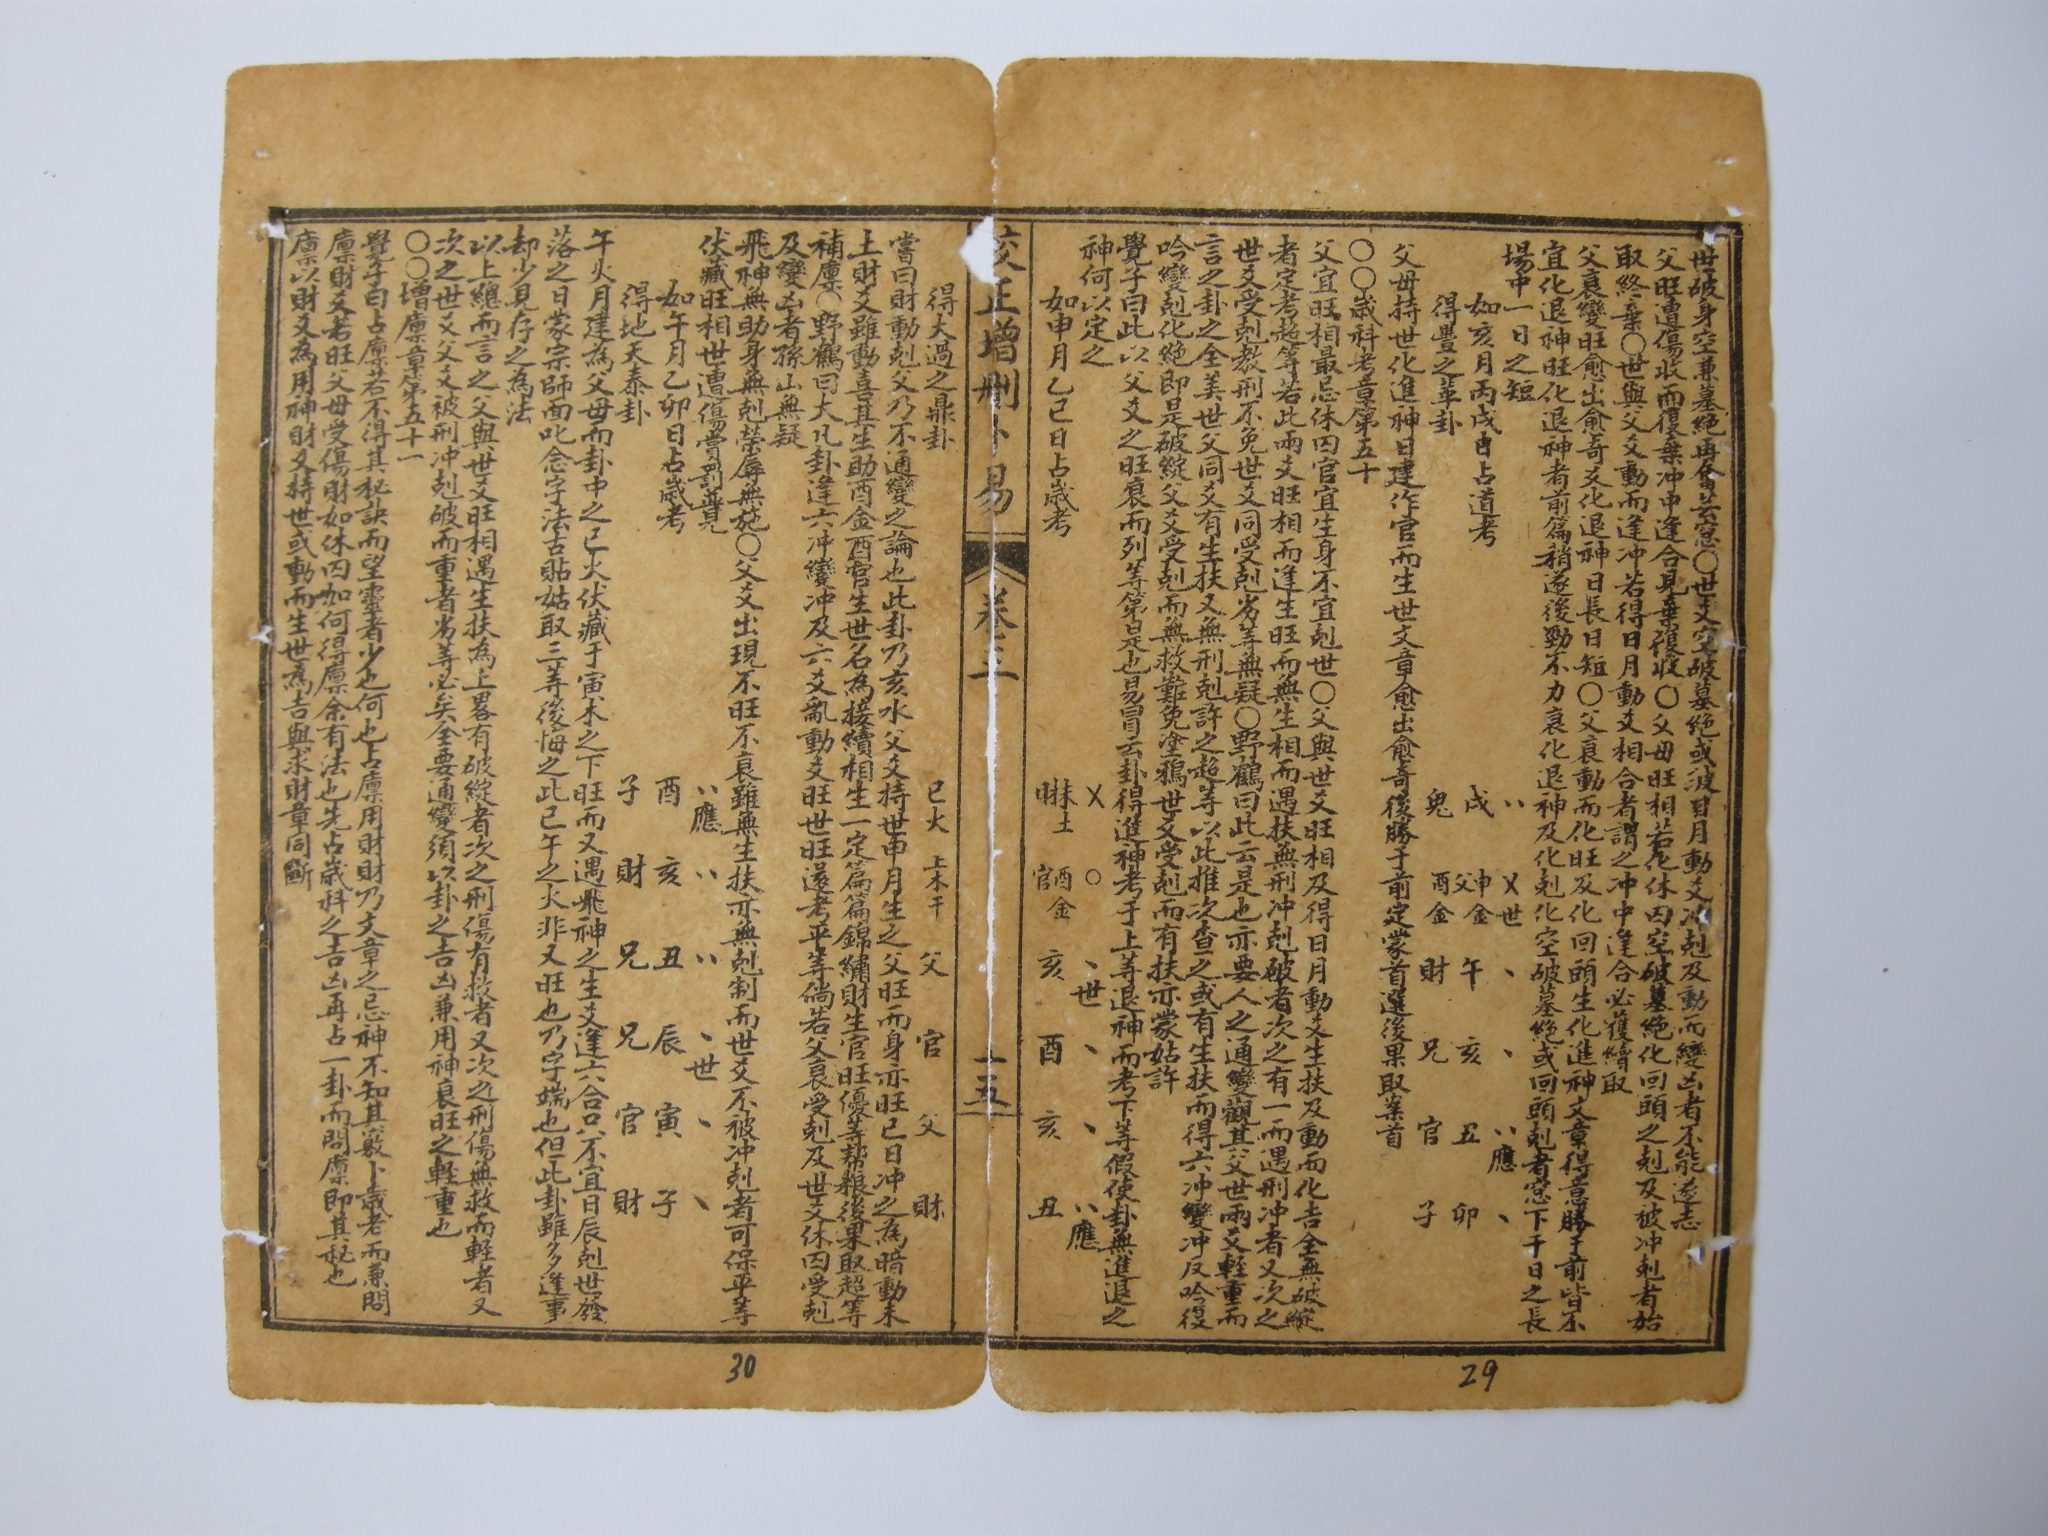 世破身空兼墓絕再會芸窓〇世爻空破墓絕或被日月動爻冲剋及動而變凶者不能遂志
父旺遭傷收而復棄冲中逢合見棄復收〇父母旺相若化休囚空破墓絕化回頭之剋及被冲剋者始
取終棄〇世與父爻動而逢冲若得日月動爻相合者謂之冲中逢合必獲續取
父衰變旺愈出愈奇爻化退神日長日短〇父衰動而化旺及化回頭生化進神文章得意勝于前皆不
宜化退神旺化退神者前篇稍遂後勁不力衰化退神及化剋化空破墓絕或回頭剋者窓下千日之長
場中一日之短
如亥月丙戌日占道考
得豐之革卦
〃 〤世 丶 丶 〃應 丶
戌 父申金 午 亥 丑 卯
鬼 酉金 財 兄 官 子
父母持世化進神日建作官而生世文章愈出愈奇後勝于前定蒙首選後果取案首
〇〇歲科考章第五十
父宜旺相最忌休囚官宜生身不宜剋世〇父與世爻旺相及得日月動爻生扶及動而化吉全無破綻
者定考超等若此兩爻旺相而逢生旺而無生相而遇扶無刑冲剋破者次之有一而遇刑冲者又次之
世爻受剋教刑不免世爻同受剋劣等無疑〇野鶴曰此云是也亦要人之通變觀其父世兩爻輕重而
言之卦之全美世父同爻有生扶又無刑剋許之超等以此推次查之或有生扶而得六冲變冲反吟復
吟變剋化絕即是破綻父爻受剋而無救難免塗鴉世爻受剋而有扶亦蒙姑許
覺子曰此以父爻之旺衰而列等第是也易冒云卦得進神考于上等退神而考下等假使卦無進退之
神何以定之
如申月乙巳日占歲考
〤 〇 丶世 丶 丶 〃應
未土 酉金 亥 酉 亥 丑
官
校正增刪卜易 卷三 一五
得大過之鼎卦
巳火 未土 父 官 父 財
嘗曰財動剋父乃不通變之論也此卦乃亥水父爻持世申月生之父旺而身亦旺巳日冲之為暗動未
土財爻雖動喜其生助酉金酉官生世名為接續相生一定篇篇錦繡財生官旺優等帮糧後果取超等
補廩〇野鶴曰大凡卦逢六冲變冲及六爻亂動爻旺世旺遂考平等倘若父衰受剋及世爻休囚受剋
及變凶者孫山無疑
飛神無助身無剋榮辱無施〇父爻出現不旺不衰雖無生扶亦無剋制而世爻不被冲剋者可保平等
伏藏旺相世遭傷賞罰並見
如午月乙卯日占歲考
得地天泰卦
〃應 〃 〃 丶世 丶 丶
酉 亥 丑 辰 寅 子
子 財 兄 兄 官 財
午火月建為父母而卦中之巳火伏藏于寅木之下旺而又遇飛神之生爻逢六合只不宜日辰剋世發
落之日蒙宗師面叱念字法古貼姑取三等後悔之此巳午之火非又旺也乃字端也但此卦雖多逢事
却少見存之為法
以上總而言之父與世爻旺相遇生扶為上畧有破綻者次之刑傷有救者又次之刑傷無救而輕者又
次之世爻父爻被刑冲剋破而重者劣等必矣全要通變須以卦之吉凶兼用神衰旺之輕重也
〇〇增廩章第五十一
覺子曰占廩若不得其秘訣而望靈者少也何也占廩用財財乃文章之忌神不知其竅卜歲考而兼問
廩財爻若旺父母受傷財如休囚如何得廩余有法也先占歲科之吉凶再占一卦而問廩即其秘也
廩以財爻為用神財爻持世或動而生世為吉與求財章同斷
30
29